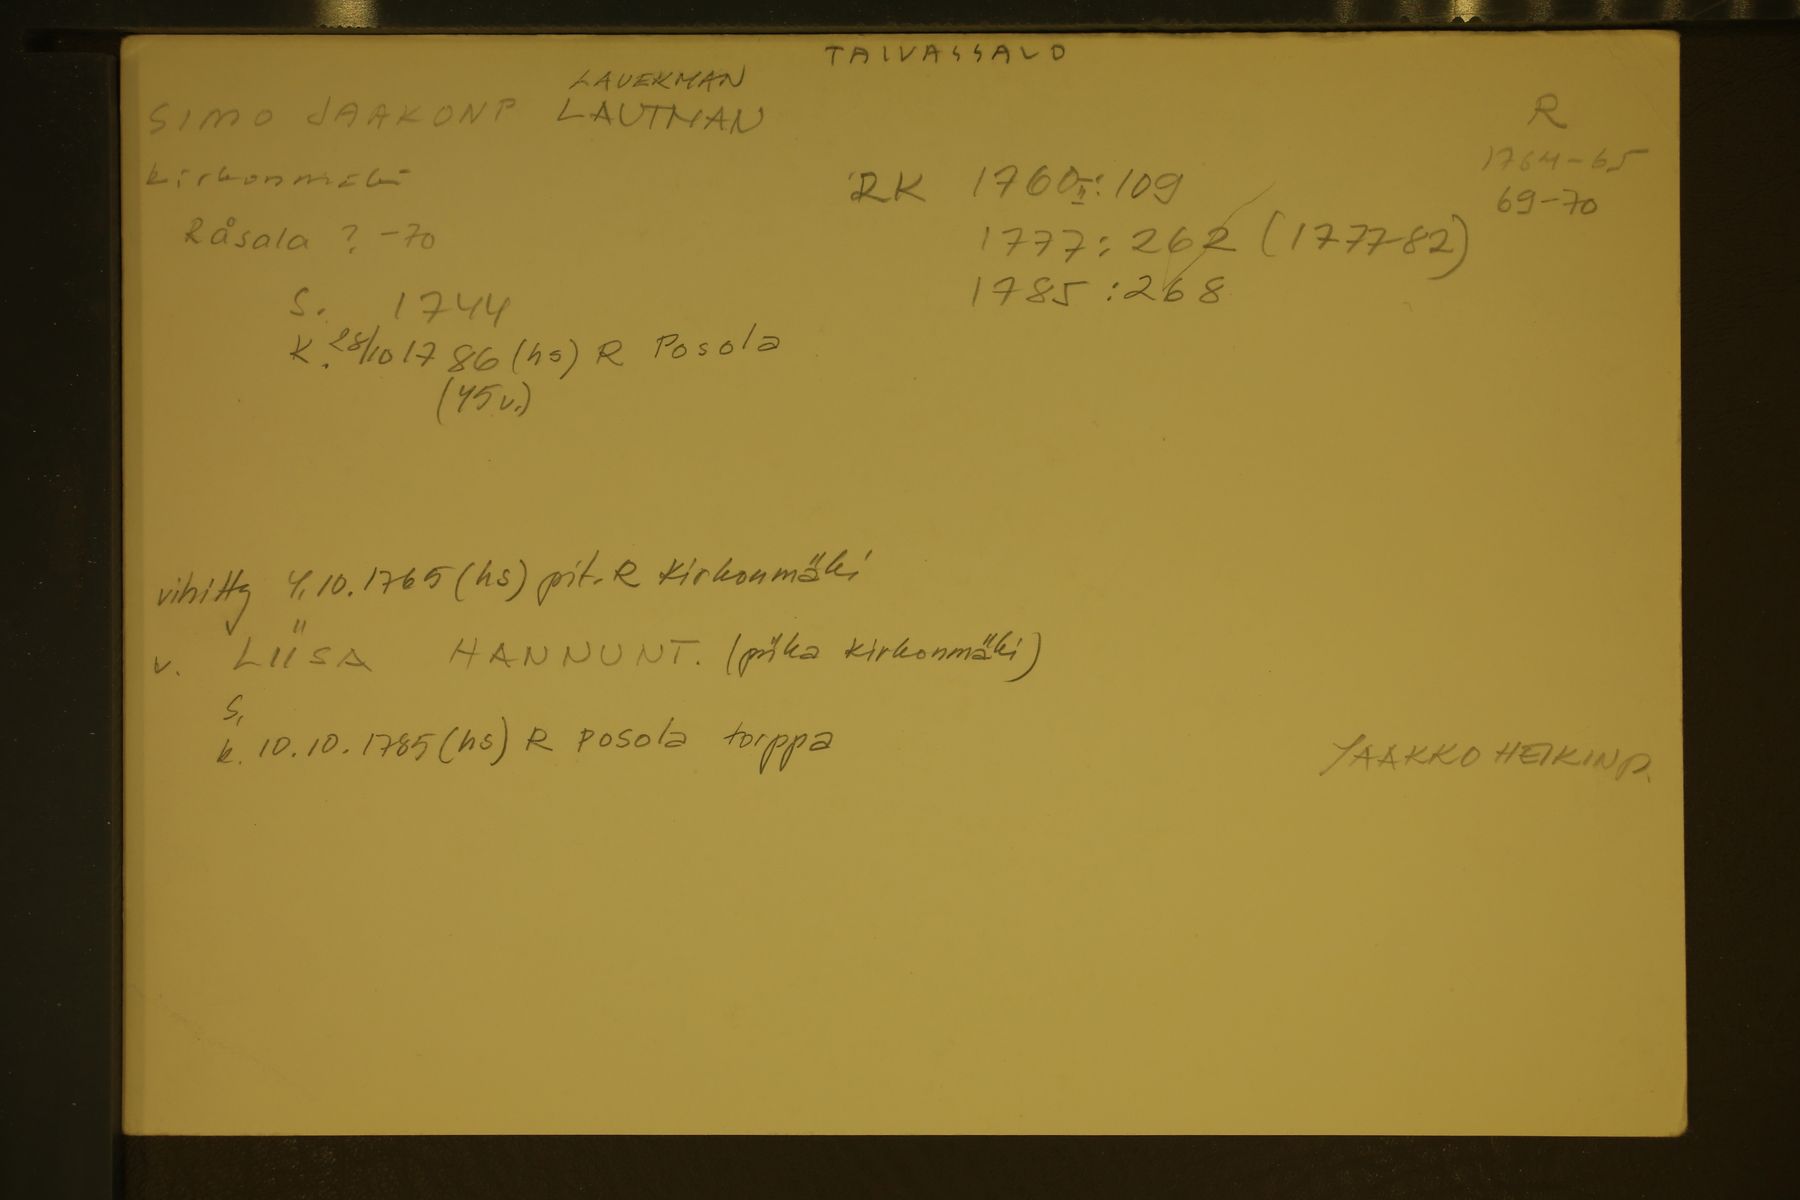 TAIVASSALO
LAUEKMAN
SIMO JAAKONP LAUTMAN
R
1764-65
69-70
Kirkonmäki
RK 1760II:109
Råsala ? -70
1777:262 (1777-82)
1785:268
S. 1744
K. 28/10 1786 (hs) R Posola
(45 v.)
vihitty 4.10.1765 (hs) pit. R Kirkonmäki
v. LIISA HANNUNT. (piika Kirkonmäki)
S.
k. 10.10.1785 (hs) R Posola torppa
JAAKKO HEIKINP.